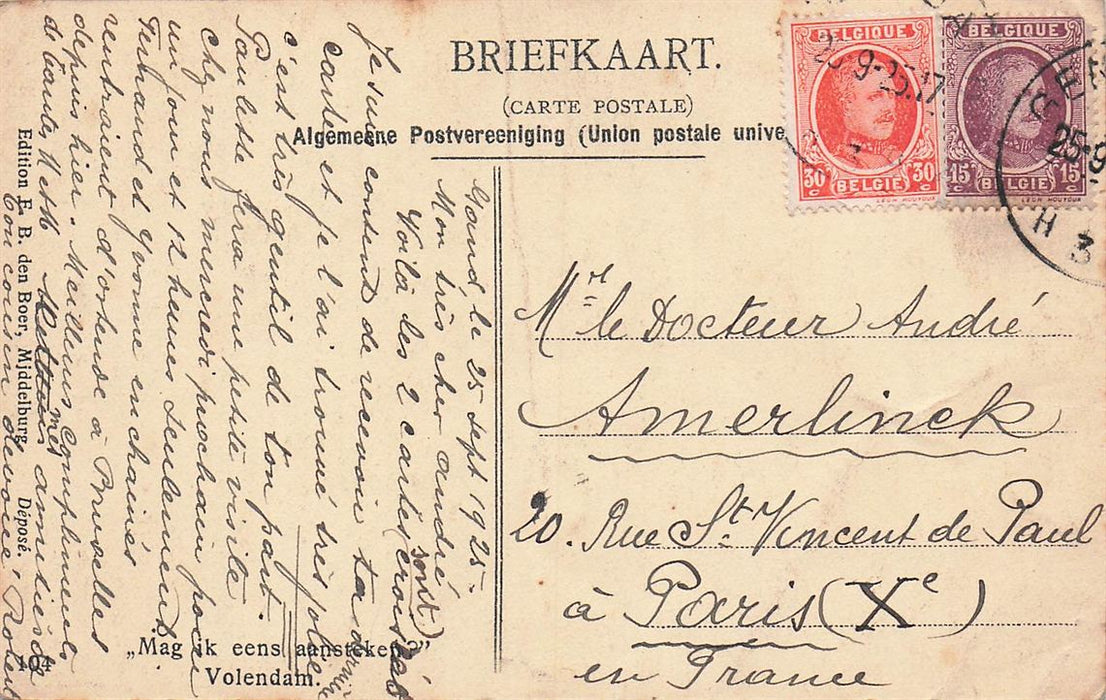 BRIEFKAART.
(CARTE POSTALE)
Algemeene Postvereeniging (Union postale unive
BELGIQUE
30 30
BELGIE
BELGIQUE
15 15
BELGIE
25-9
H 3
Gand, le 25 sept 1925-
Mon très cher andré
Voilà les 2 cartes
Je suis content de recevoir ta
carte et je l'ai trouvé très jolie
c'est très gentil de ton part.
Paulette fera une petite visite
chez nous mercredi prochain pour
un jour et 12 heures seulement
Ferhand et Yvonne enchainés
rentraient d'ostende à Bruxelles
depuis hier. Meilleurs Compliments
mes amitiés
Ton cousin devoué, Robert
Mr. le Docteur André
Amerlinck
20. Rue St. Vincent de Paul
à Paris (Xe)
en France
Edition F. B. den Boer, Middelburg. Deposé.
404
„Mag ik eens aansteken?"
Volendam.